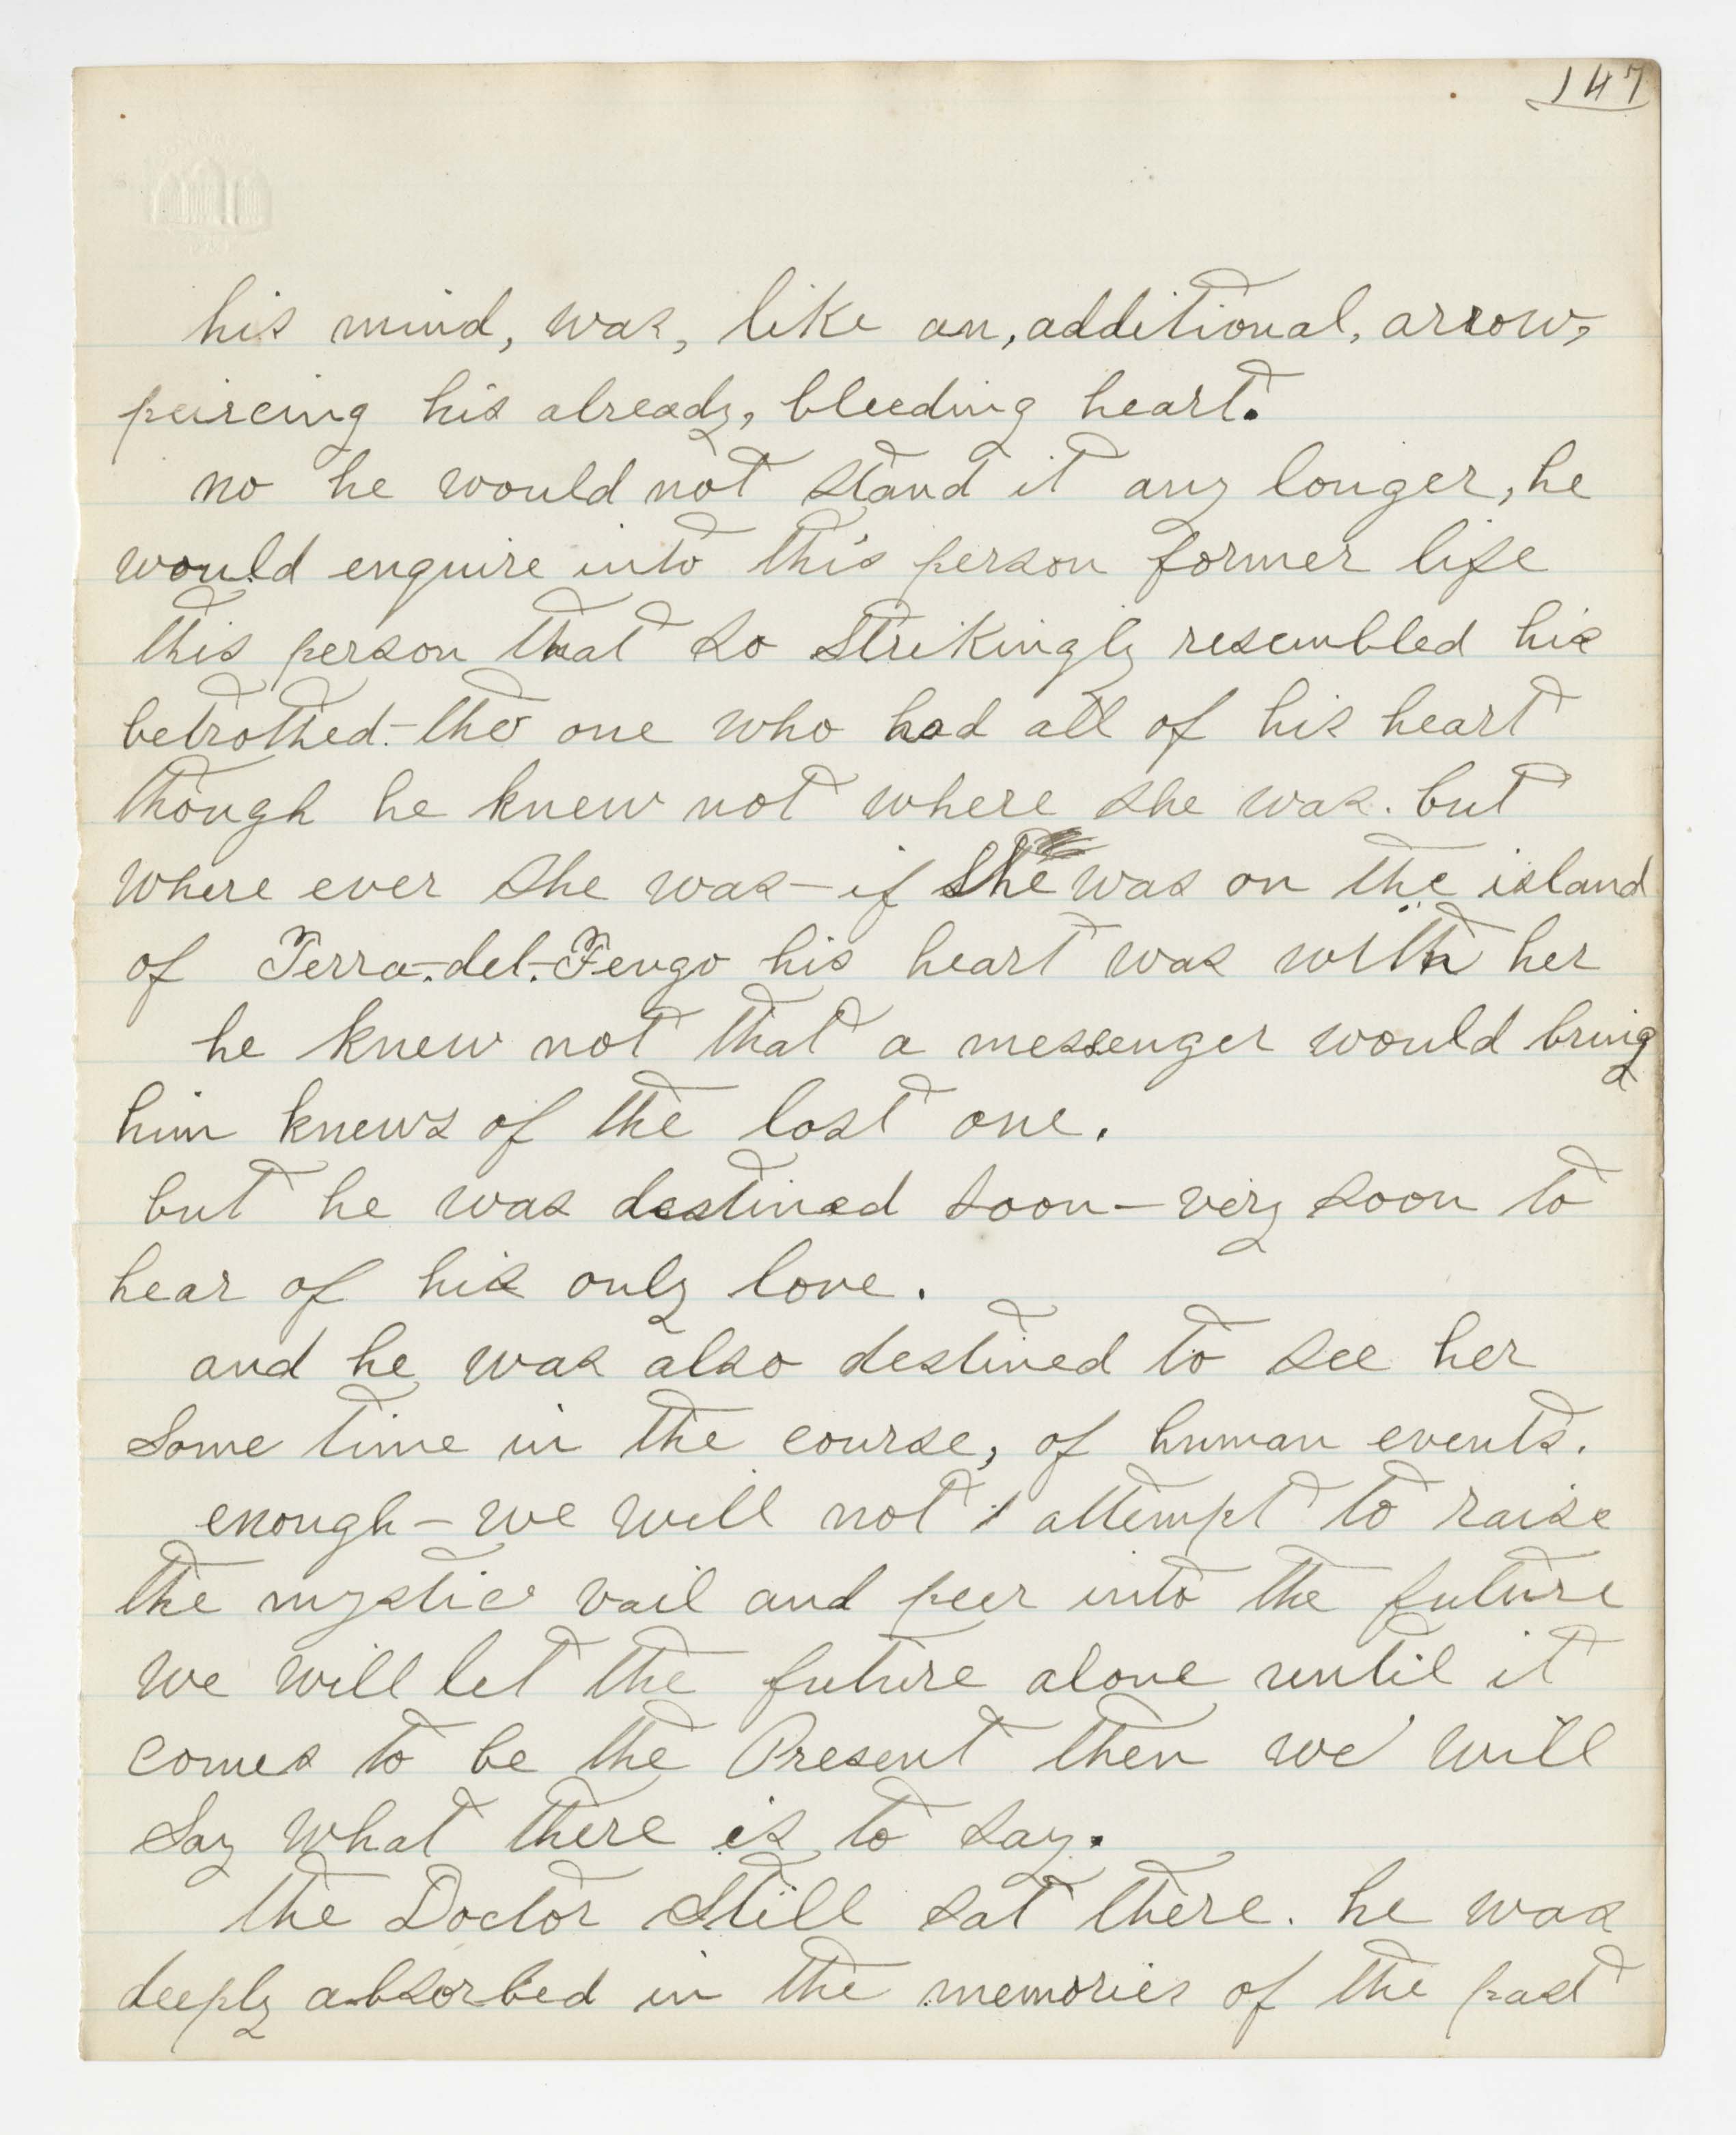 147
his mind, was, like an, additional, arrow,
peircing his already, bleeding heart.
no he would not stand it any longer, he
would enquire into this person former life
this person that so strikingly resembled his
betrothed.- the one who had all of his heart
though he knew not where she was. but
where ever she was - if she was on the island
of Terra-del-Feugo his heart was with her
he knew not that a messenger would bring
him knews of the lost one.
but he was destined soon - very soon to
hear of his only love.
and he was also destined to see her
some time in the course, of human events.
enough - we will not attempt to raise
the mystic vail and peer into the future
we will let the future alone until it
comes to be the Present then we will
say what there is to say.
the Doctor still sat there. he was
deeply absorbed in the memories of the past